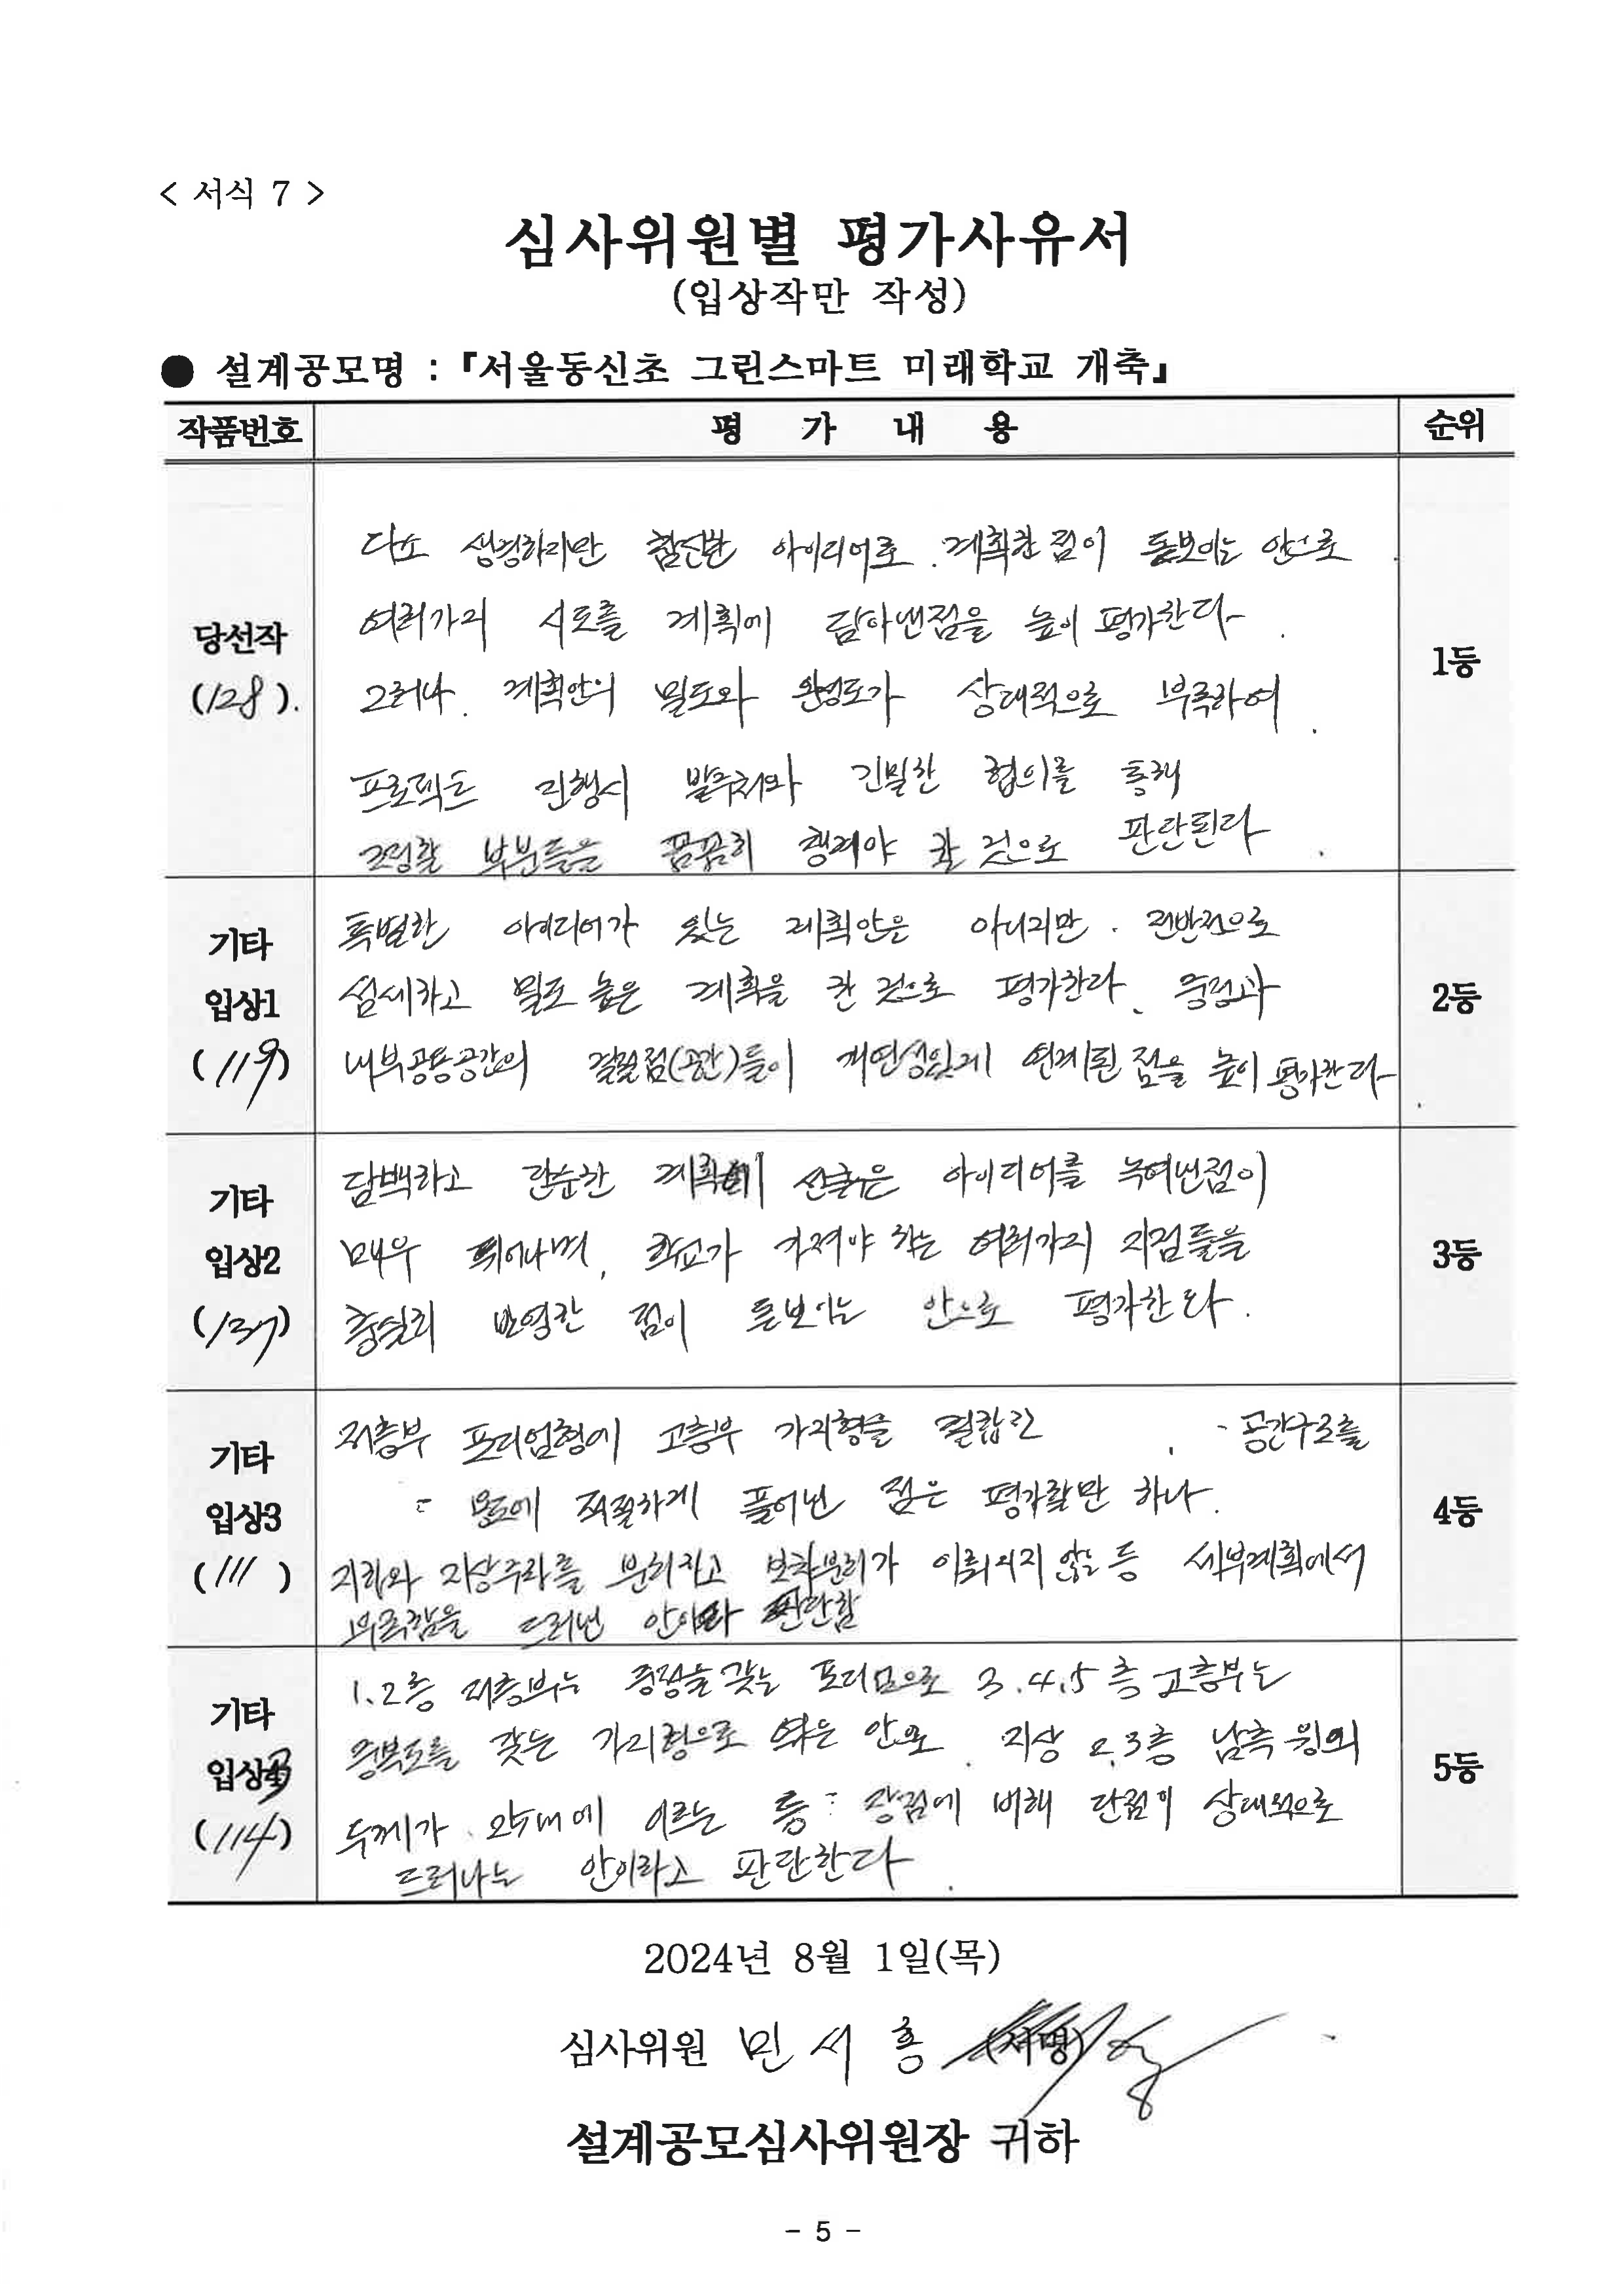 < 서식 7 >
심사위원별 평가사유서
(입상작만 작성)
● 설계공모명 : 『서울동신초 그린스마트 미래학교 개축』
작품번호 평 가 내 용 순위
당선작
(128).
다소 생경하지만 참신한 아이디어로. 계획한 점이 돋보이는 안으로
여러가지 시도를 계획에 담아낸점을 높이 평가한다.
그러나. 계획안의 밀도와 완성도가 상대적으로 부족하여
프로젝트 진행시 발주처와 긴밀한 협의를 통해
조정할 부분들을 꼼꼼히 챙겨야 할 것으로 판단된다.
1등
기타
입상1
(119)
특별한 아이디어가 있는 계획안은 아니지만. 전반적으로
섬세하고 밀도 높은 계획을 한 것으로 평가한다. 중정과
내부공용공간의 결절점(공간)들이 개연성있게 연계된 점을 높이 평가한다.
2등
기타
입상2
(137)
담백하고 단순한 계획에 아이디어를 녹여낸점이
매우 뛰어나며, 학교가 가져야 하는 여러가지 지점들을
충실히 반영한 점이 돋보이는 안으로 평가한다.
3등
기타
입상3
(111)
저층부 포디엄형에 고층부 가지형을 결합한 공간구조를
용도에 적절하게 풀어낸 점은 평가할만 하나.
지하와 지상주차를 분리하고 보차분리가 이뤄지지 않는 등 세부계획에서
부족함을 드러낸 안이라 판단함
4등
기타
입상
(114)
1.2층 저층부는 중정을 갖는 포디엄으로 3.4.5층 고층부는
중복도를 갖는 가지형으로 엮은 안으로. 지상 2.3층 남측 윙의
두께가 에 이르는 등 장점에 비해 단점이 상대적으로
드러나는 안이라고 판단한다.
5등
2024년 8월 1일(목)
심사위원 민서홍 (서명)
설계공모심사위원장 귀하
- 5 -